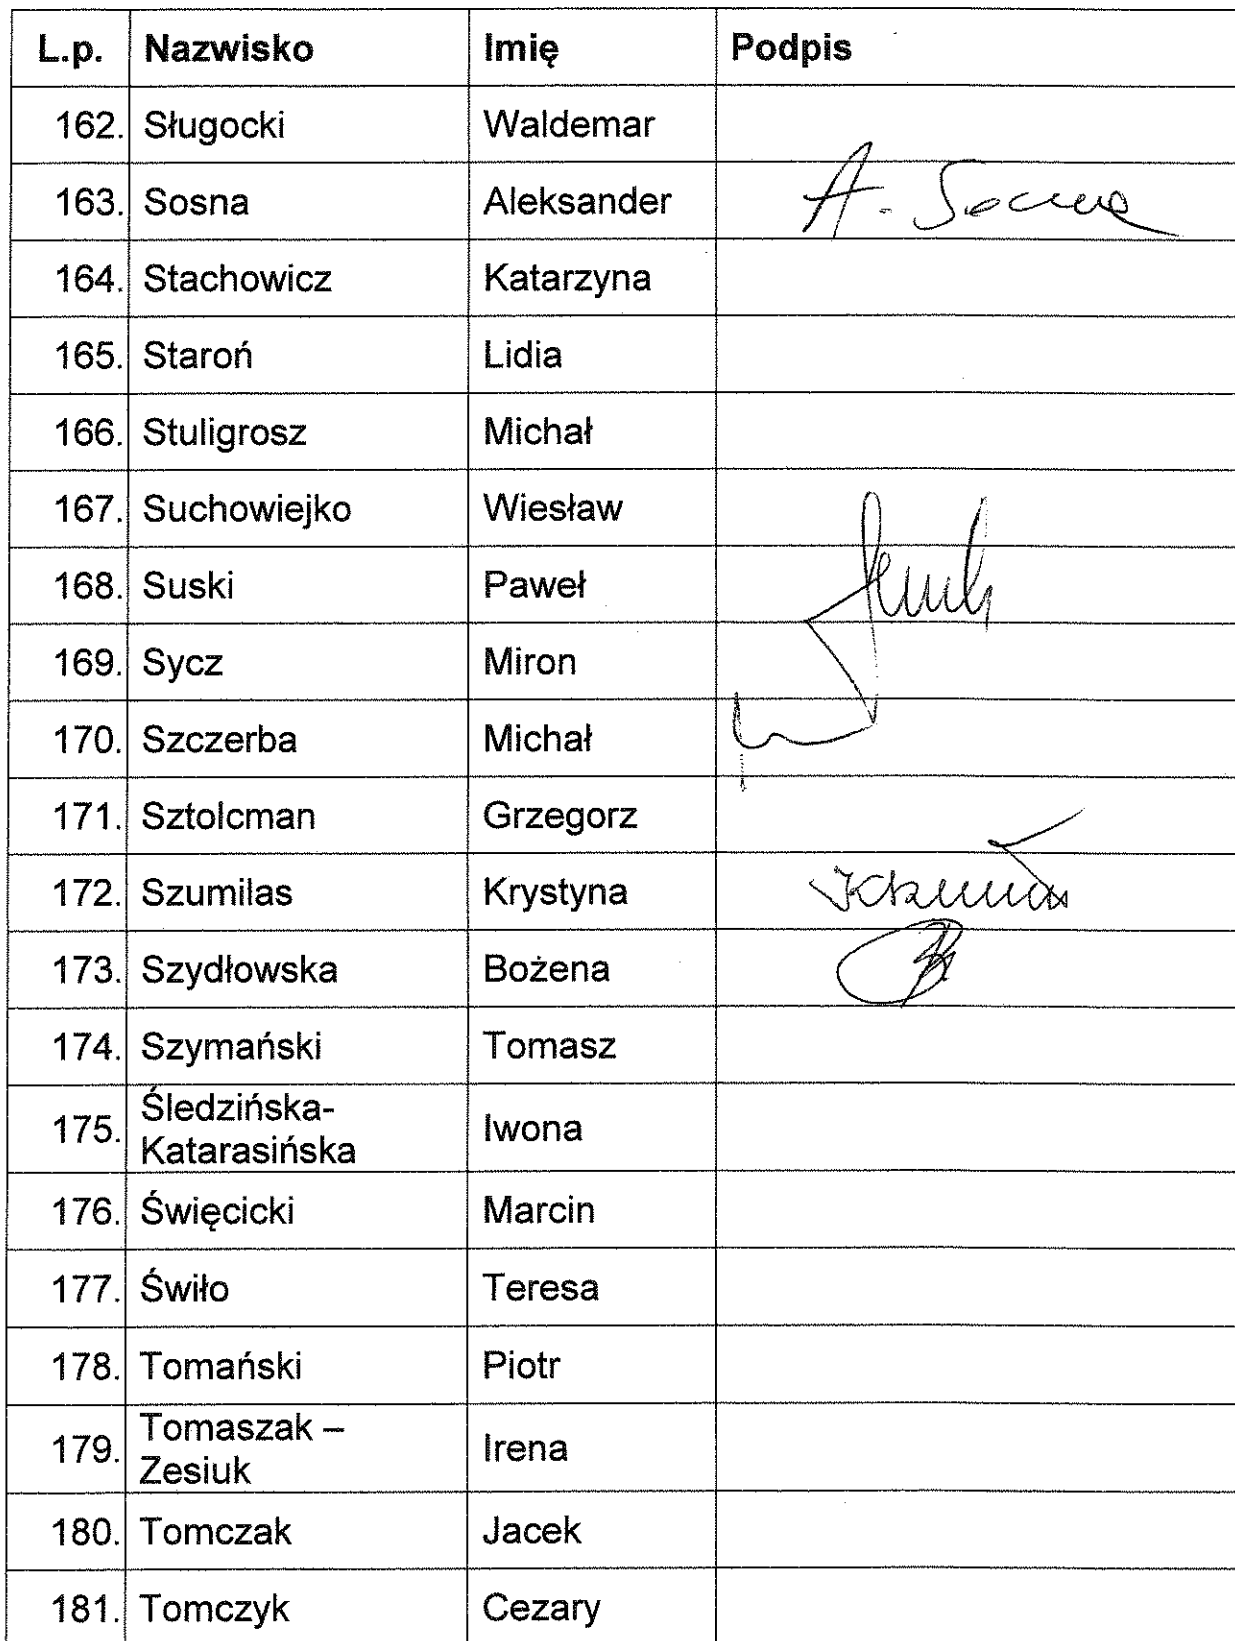 L.p. Nazwisko Imię Podpis
162. Sługocki Waldemar
163. Sosna Aleksander A. Sosna
164. Stachowicz Katarzyna
165. Staroń Lidia
166. Stuligrosz Michał
167. Suchowiejko Wiesław
168. Suski Paweł
169. Sycz Miron
170. Szczerba Michał
171. Sztolcman Grzegorz
172. Szumilas Krystyna
173. Szydłowska Bożena
174. Szymański Tomasz
175. Śledzińska-
Katarasińska Iwona
176. Święcicki Marcin
177. Świło Teresa
178. Tomański Piotr
179. Tomaszak –
Zesiuk Irena
180. Tomczak Jacek
181. Tomczyk Cezary